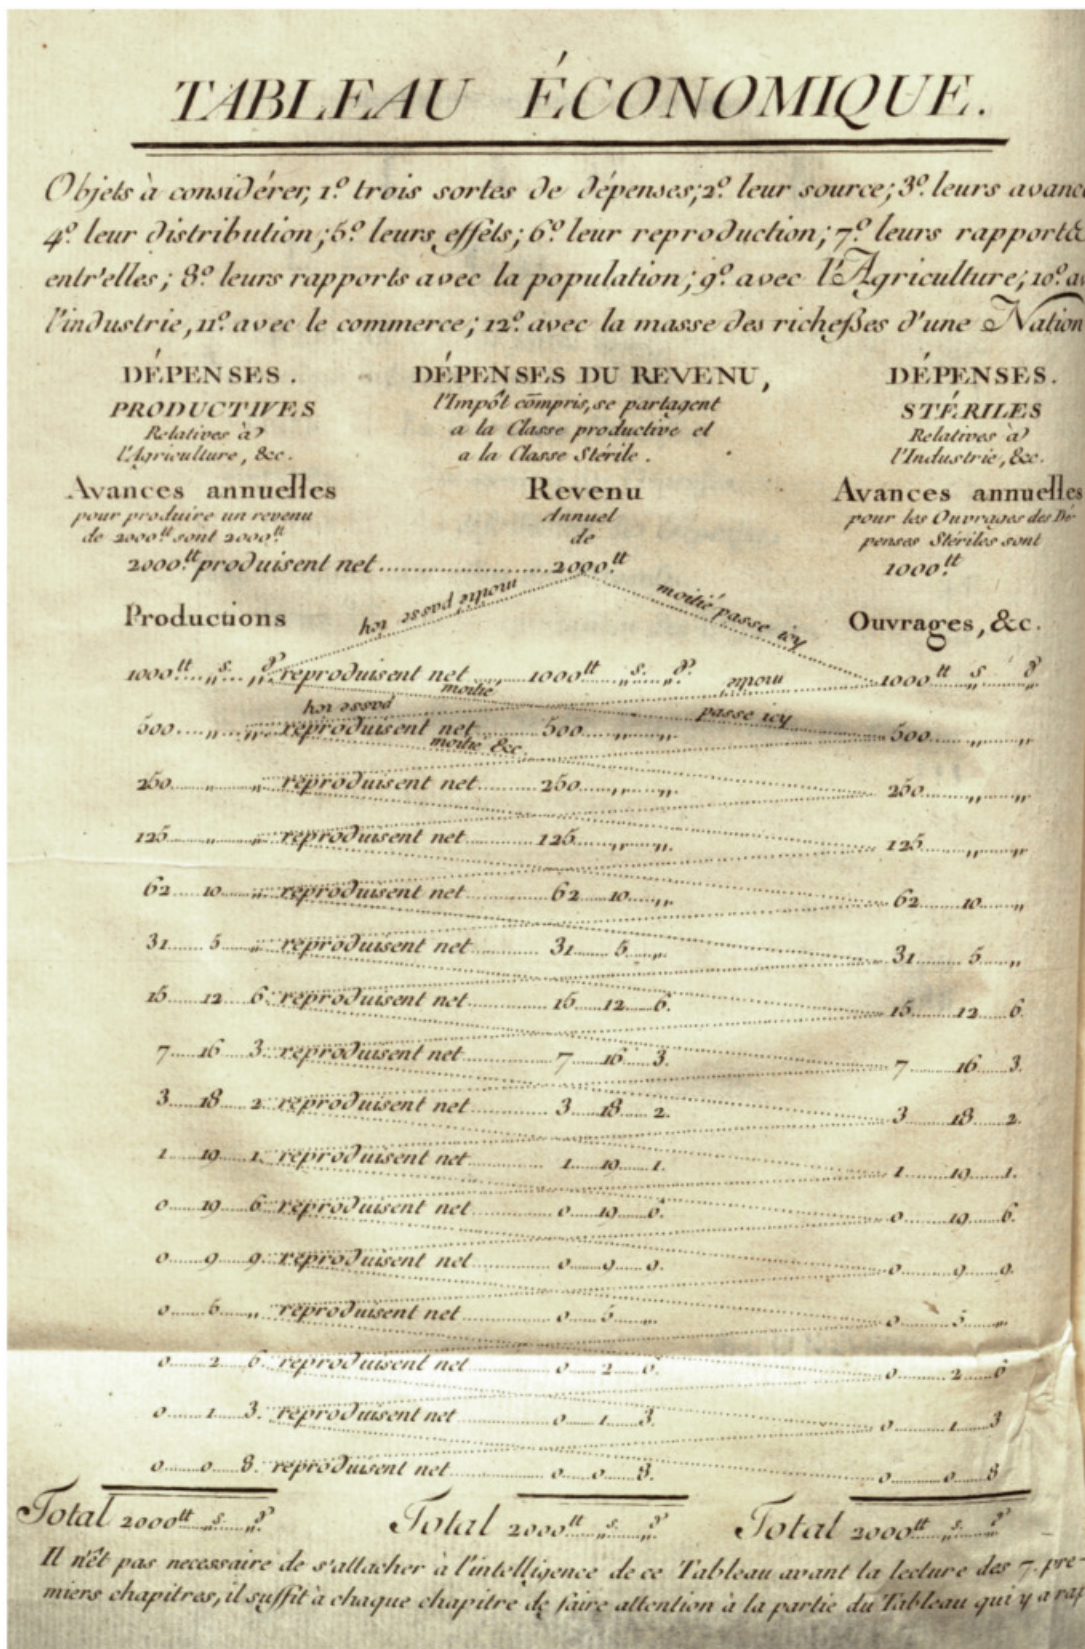 TABLEAU ÉCONOMIQUE.
Objets à considérer, 1.º trois sortes de dépenses; 2.º leur source; 3.º leurs avanc
4.º leur distribution; 5.º leurs effèts; 6.º leur reproduction; 7.º leurs rapports
entr'elles; 8.º leurs rapports avec la population; 9.º avec l'Agriculture; 10.º av
l'industrie, 11.º avec le commerce; 12.º avec la masse des richeßes d'une Nation
DÉPENSES. DÉPENSES DU REVENU, DÉPENSES.
PRODUCTIVES l'Impôt compris, se partagent STÉRILES
Relatives à a la Classe productive et Relatives à
l'Agriculture, &c. a la Classe Stérile. l'Industrie, &c.
Avances annuelles Revenu Avances annuelles
pour produire un revenu Annuel pour les Ouvrages des Dé-
de 2000.tt sont 2000.tt de penses Stériles sont
2000.tt produisent net 2000.tt 1000.tt
moitié passe icy moitié passe icy
Productions Ouvrages, &c.
1000.tt „ s. „ d. reproduisent net 1000.tt „ s. „ d. 1000.tt „ s „ d
moitié moitié
passe icy passe icy
500 „ „ reproduisent net 500 „ „ 500 „ „
moitié &c.
250 „ „ reproduisent net 250 „ „ 250 „ „
125 „ „ reproduisent net 125 „ „ 125 „ „
62 10 „ reproduisent net 62 10 „ 62 10 „
31 5 „ reproduisent net 31 5 „ 31 5 „
15 12 6. reproduisent net 15 12 6. 15 12 6.
7 16 3. reproduisent net 7 16 3. 7 16 3.
3 18 2. reproduisent net 3 18 2. 3 18 2.
1 19 1. reproduisent net 1 19 1. 1 19 1.
0 19 6. reproduisent net 0 19 6. 0 19 6.
0 9 9. reproduisent net 0 9 9. 0 9 9.
0 5 „ reproduisent net 0 5 „ 0 5 „
0 2 6. reproduisent net 0 2 6. 0 2 6
0 1 3. reproduisent net 0 1 3. 0 1 3
0 0 8. reproduisent net 0 0 8. 0 0 8
Total 2000tt „ s. „ d. Total 2000tt „ s. „ d. Total 2000tt „ s. „ d.
Il n'êt pas necessaire de s'attacher à l'intelligence de ce Tableau avant la lecture des 7. pre-
miers chapitres, il suffit à chaque chapitre de faire attention à la partie du Tableau qui y a rap